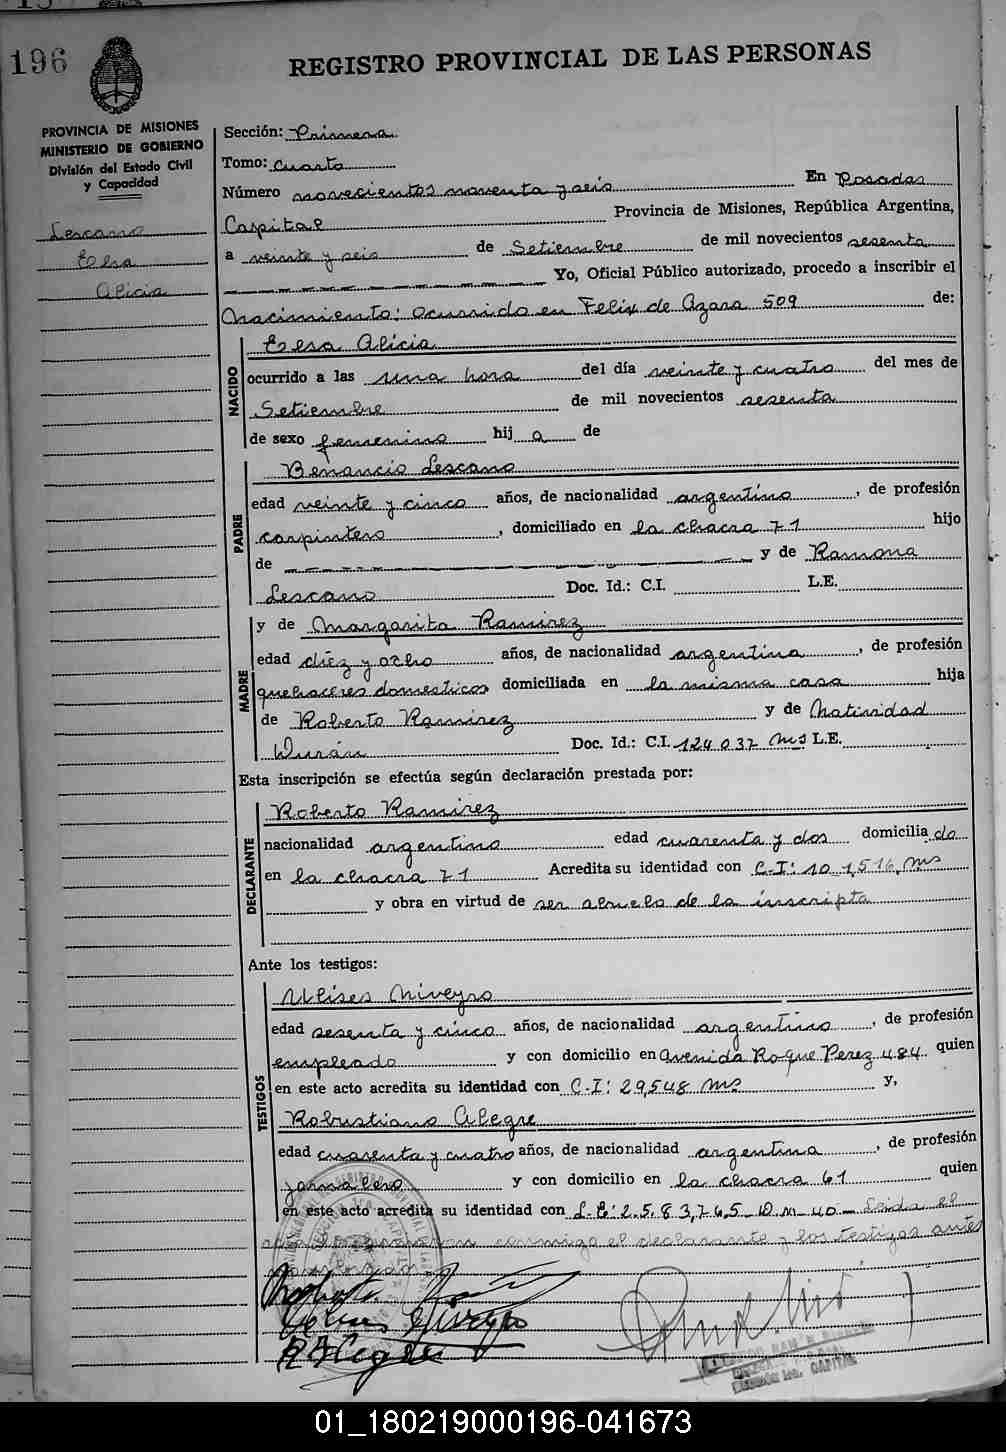 196
REGISTRO PROVINCIAL DE LAS PERSONAS
PROVINCIA DE MISIONES
MINISTERIO DE GOBIERNO
División del Estado Civil
y Capacidad
Lescano
Elsa
Alicia
Sección: Primera
Tomo: Cuarto
Número novecientos noventa y seis En Posadas
Capital Provincia de Misiones, República Argentina,
a veinte y seis de Setiembre de mil novecientos sesenta
Yo, Oficial Público autorizado, procedo a inscribir el
Nacimiento: ocurrido en Felix de Azara 509 de:
NACIDO
Elsa Alicia
ocurrido a las una hora del día veinte y cuatro del mes de
Setiembre de mil novecientos sesenta
de sexo femenino hij a de
PADRE
Benancio Lescano
edad veinte y cinco años, de nacionalidad argentino, de profesión
carpintero, domiciliado en la chacra 71 hijo
de y de Ramona
Lescano Doc. Id.: C.I. L.E.
MADRE
y de Margarita Ramirez
edad diez y ocho años, de nacionalidad argentina, de profesión
quehaceres domesticos domiciliada en la misma casa hija
de Roberto Ramirez y de Natividad
Durán Doc. Id.: C.I. 124037 Ms L.E.
Esta inscripción se efectúa según declaración prestada por:
DECLARANTE
Roberto Ramirez
nacionalidad argentino edad cuarenta y dos domicilia do
en la chacra 71 Acredita su identidad con C.I: 101,516, Ms
y obra en virtud de ser abuelo de la inscripta
Ante los testigos:
TESTIGOS
Ulises Niveyro
edad sesenta y cinco años, de nacionalidad argentino, de profesión
empleado y con domicilio en Avenida Roque Perez 484 quien
en este acto acredita su identidad con C.I: 29,548 Ms y,
Robustiano Alegre
edad cuarenta y cuatro años, de nacionalidad argentina, de profesión
jornalero y con domicilio en la chacra 61 quien
en este acto acredita su identidad con L.E: 2.583,765 D.M. 40 - Leida el
conmigo el declarante y los testigos antes
01_180219000196-041673